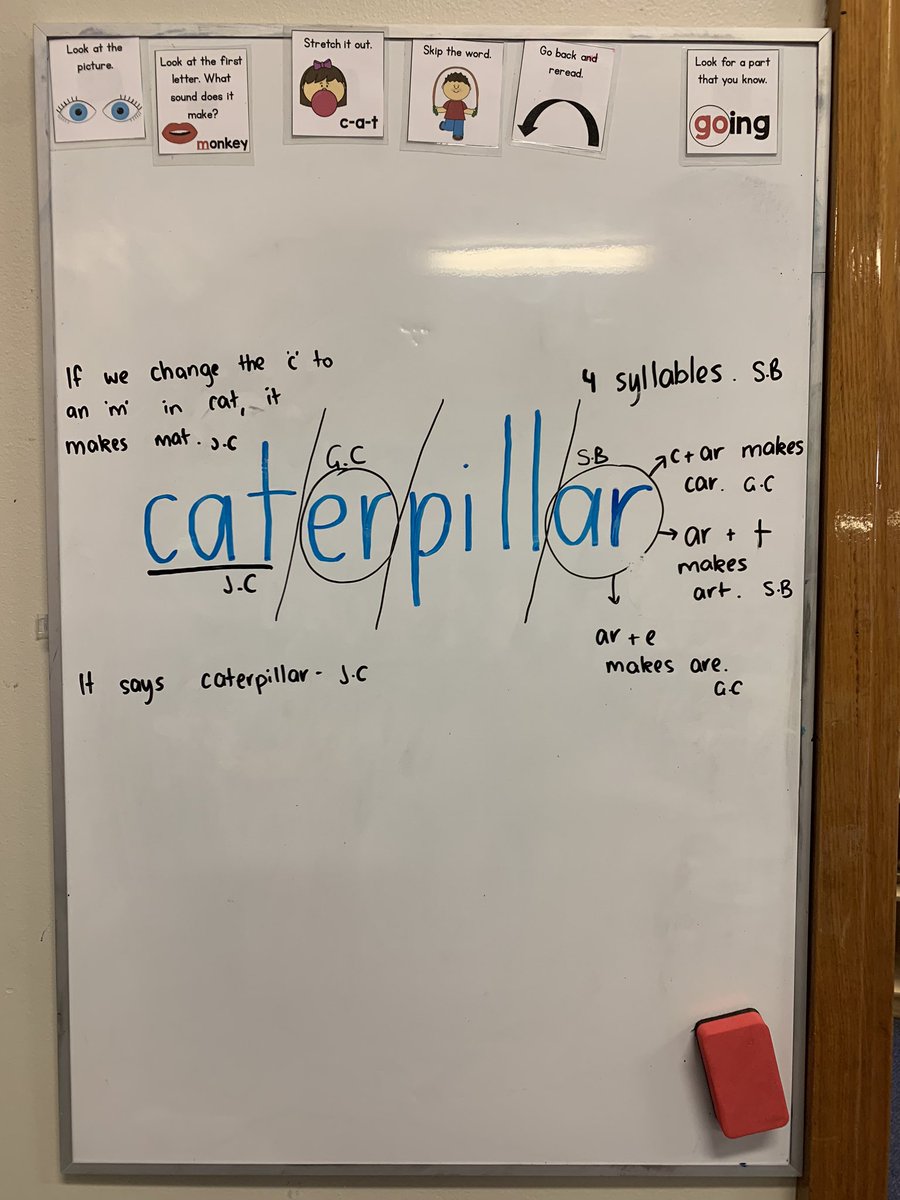 Look at the
picture.
Look at the first
letter. What
sound does it
make?
monkey
Stretch it out.
c-a-t
Skip the word.
Go back and
reread.
Look for a part
that you know.
going
If we change the 'c' to
an 'm' in cat, it
makes mat. J.C
4 syllables. S.B
G.C
S.B
caterpillar
J.C
c+ar makes
car. G.C
ar + t
makes
art. S.B
ar + e
makes are.
G.C
It says caterpillar - J.C